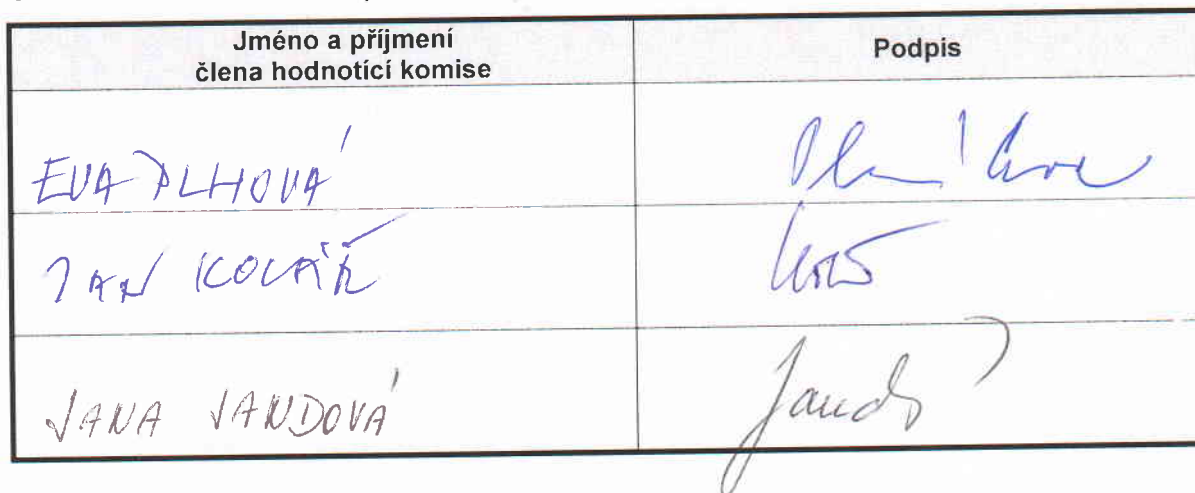 Jméno a příjmení
člena hodnotící komise
Podpis
EVA PLHOVÁ
JAN KOVÁŘ
JANA JANDOVÁ